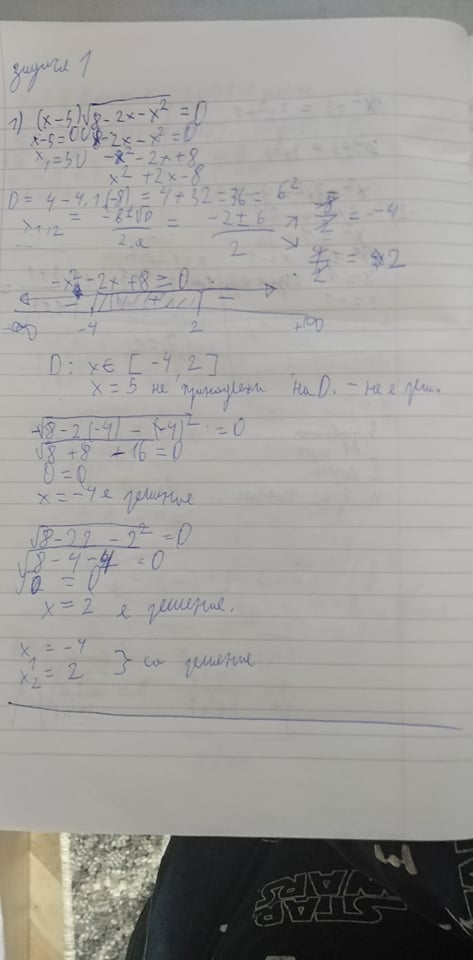 задача 1
1) (x-5)√8-2x-x² = 0
x-5=0 ∪ 8-2x-x²=0
x₁=5 ∪ -x²-2x+8
x²+2x-8
D = 4-4.1.(-8) = 4+32=36= 6²
x₁,₂ = -b±√D / 2.a = -2±6 / 2 ↗ -8/2 = -4
↘ 4/2 = 2
-x²-2x+8 ≥ 0
- + -
-∞ -4 2 +∞
D: x ∈ [-4, 2]
x = 5 не принадлежи на D. - не е реш.
√8-2(-4)-(-4)² = 0
√8+8-16=0
0=0
x=-4 е решение
√8-2.2-2² =0
√8-4-4 =0
√0 = 0
x=2 е решение.
x₁ = -4
x₂ = 2 } са решение
STAR
WARS